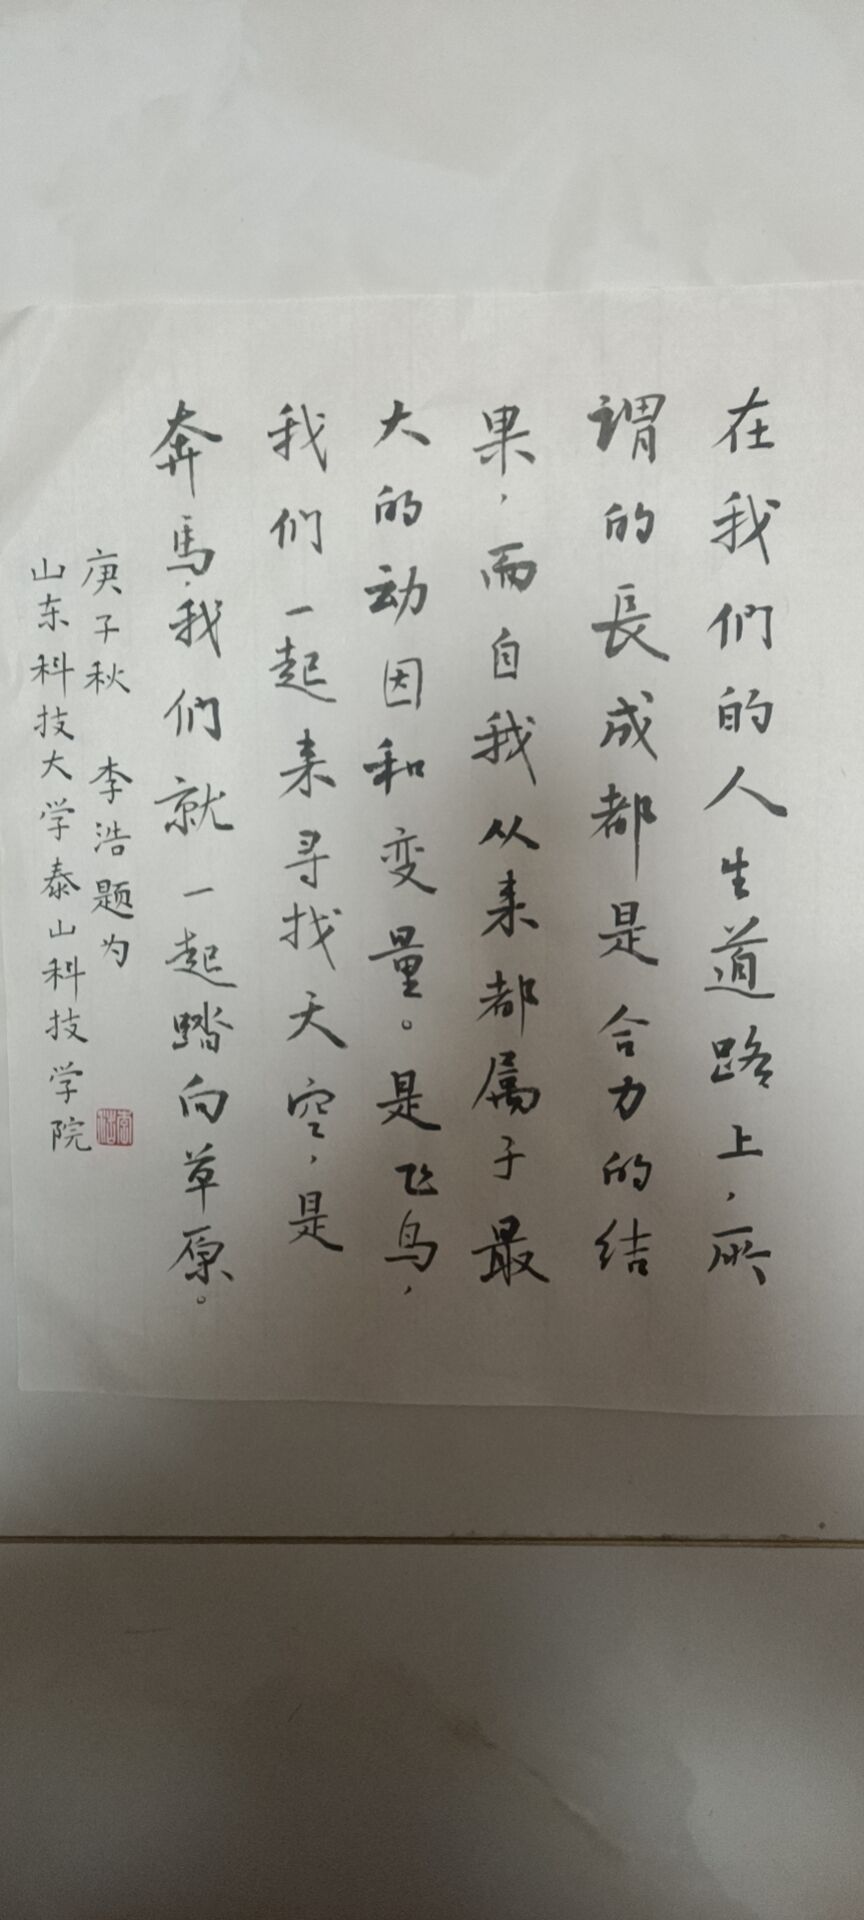 在我们的人生道路上，所
谓的長成都是合力的结
果，而自我从来都属于最
大的动因和变量。是飞鸟，
我们一起来寻找天空，是
奔馬，我们就一起踏向草原。
庚子秋 李浩题为
山东科技大学泰山科技学院
李浩